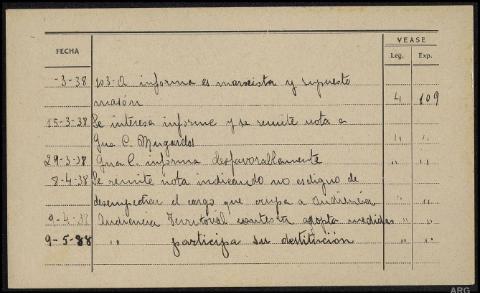 FECHA
VEASE
Leg. Exp.
-3-38 103-A informa es marxista y supuesto
masón 4 109
15-3-38 Se interesa informe y se remite nota a
Gna C. Mugardos " "
29-3-38 Gna C. informa desfavorablemente " "
8-4-38 Se remite nota indicando no es digno de
desempeñar el cargo que ocupa a Audiencia " "
9-4-38 Audiencia Territorial contesta adopta medidas " "
9-5-38 " participa su destitución " "
ARG